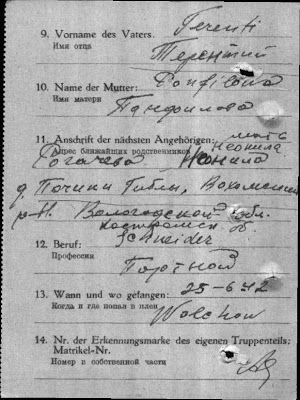 9. Vorname des Vaters Terenti
Имя отца
Терентий
10. Name der Mutter: Panfilowa
Имя матери
Панфилова
11. Anschrift der nächsten Angehörigen: мать
Адрес ближайших родственников Неонила
Рогачева Неонила
д. Починки, Вохомский
р-н. Вологодской обл.
Костромск об.
12. Beruf: Schneider
Профессия
Портной
13. Wann und wo gefangen: 25-6-42
Когда и где попал в плен
Wolchow
14. Nr. der Erkennungsmarke des eigenen Truppenteils:
Matrikel-Nr.
Номер в собственной части